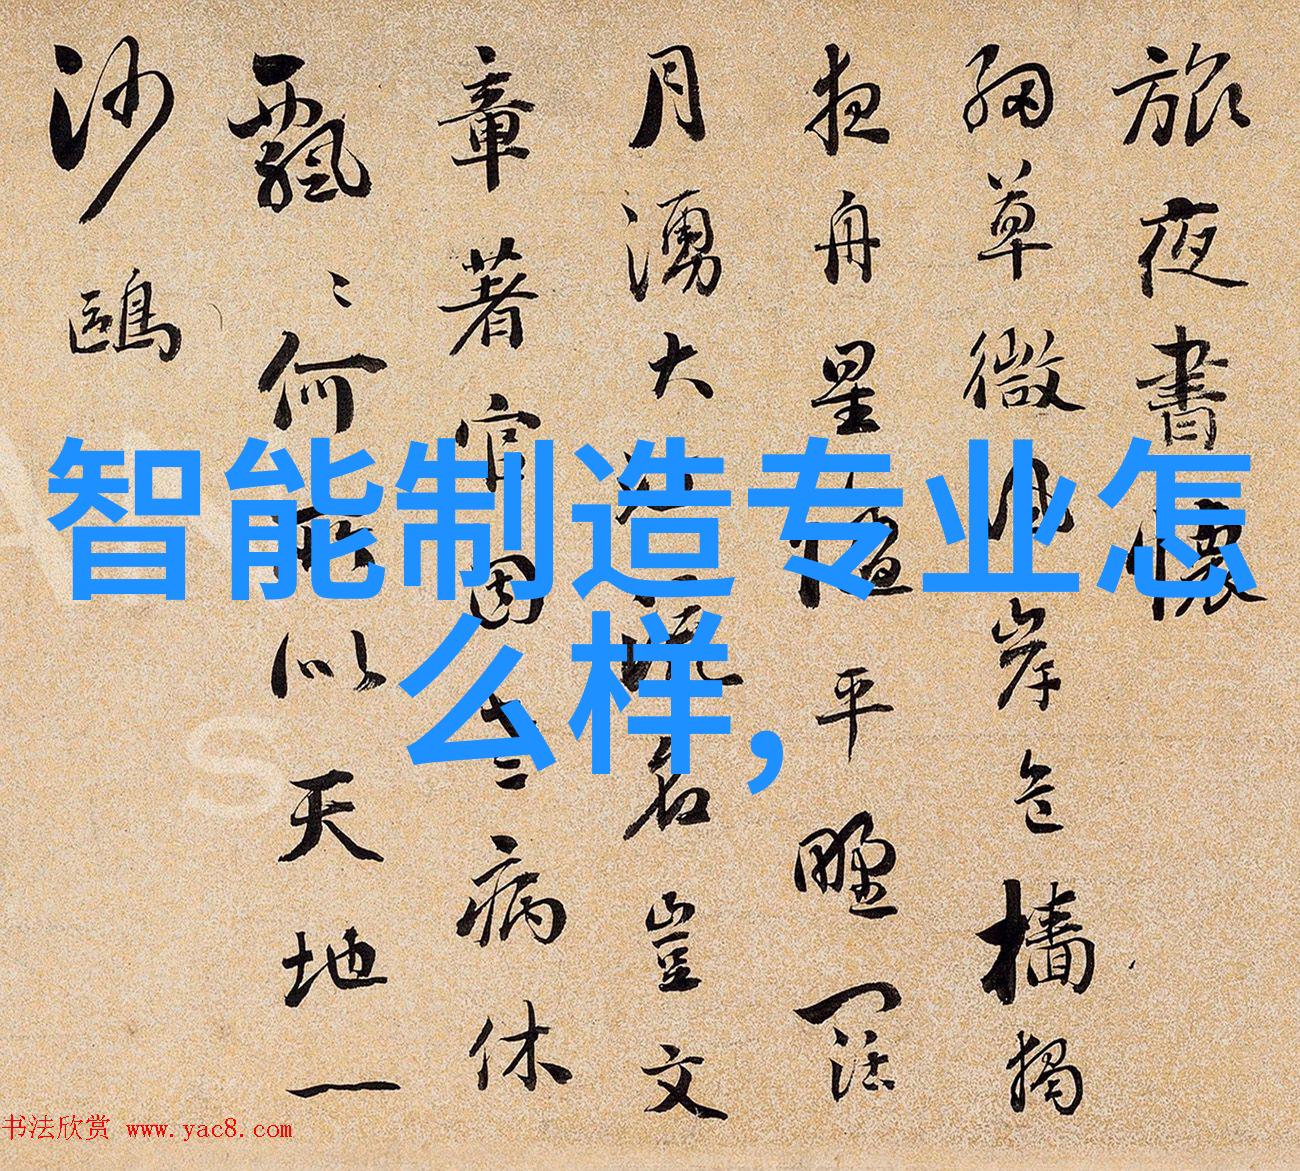 旅夜書懷
細草微風岸危檣獨
夜舟星平野闊
月湧大江流名豈文
章著官因老病休
飄々何所似天地一
沙鷗
智能制造专业怎
么样,
书法欣赏 www.yac8.com